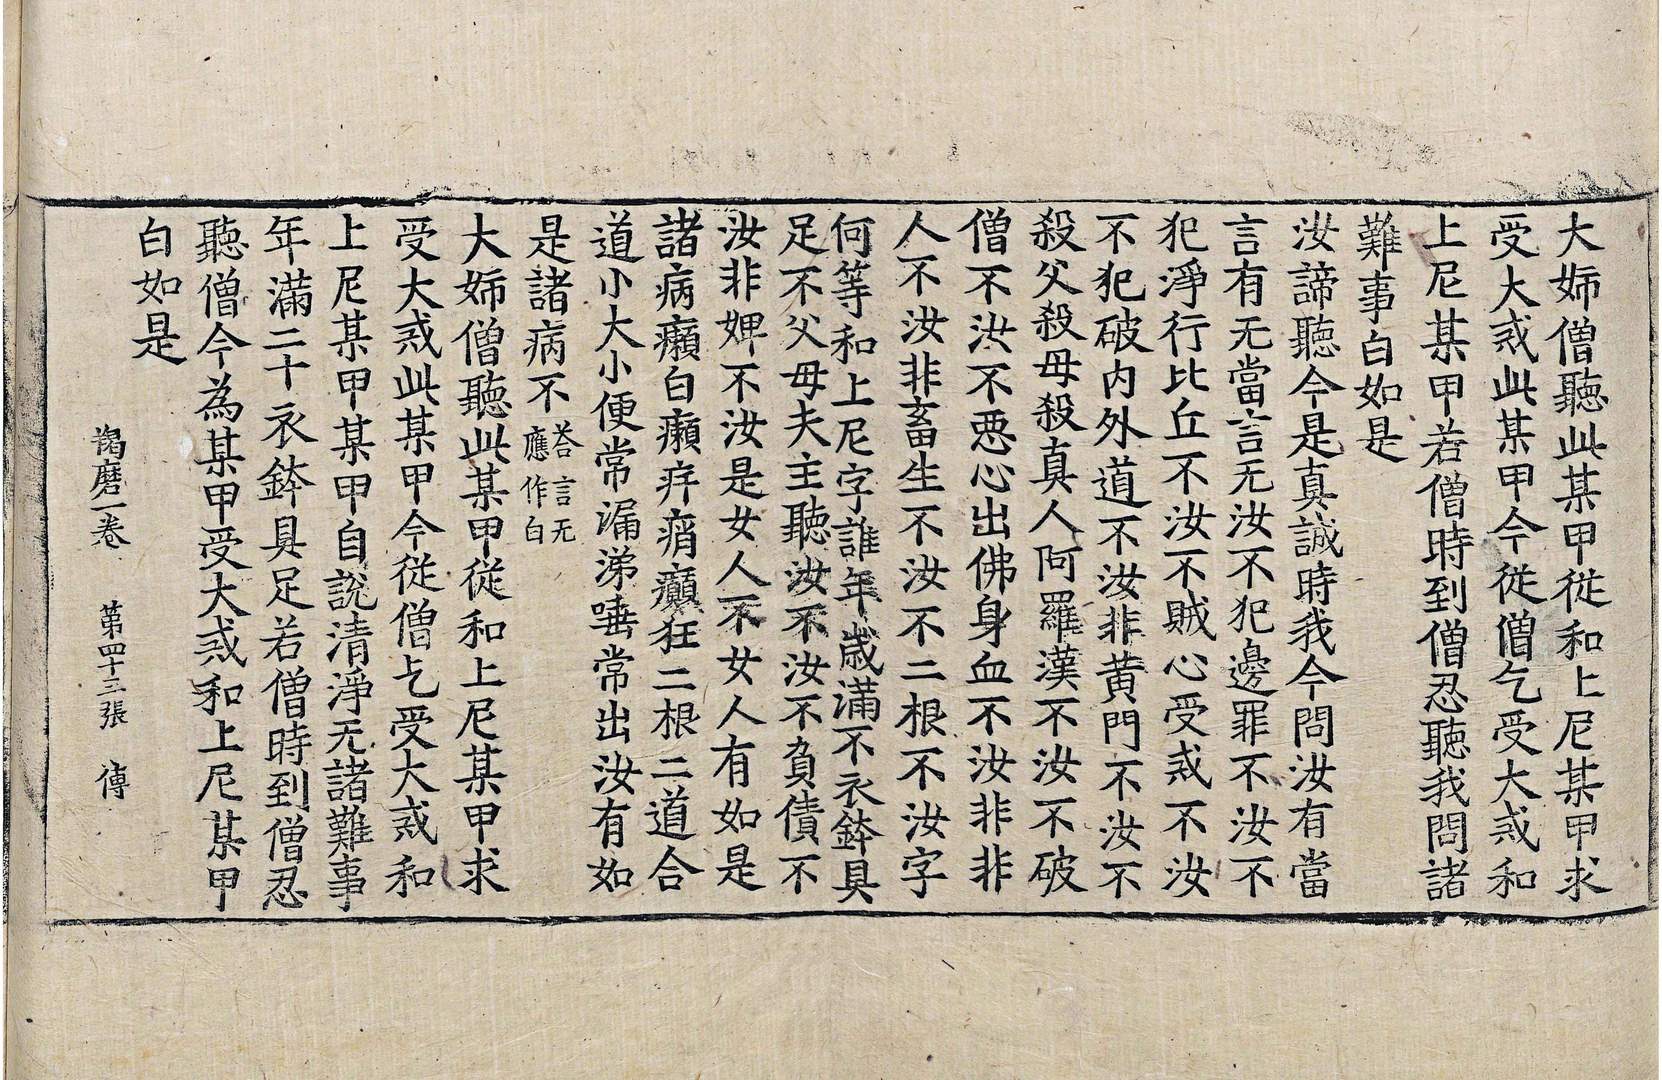 大姉僧聽此某甲從和上尼某甲求
受大戒此某甲今從僧乞受大戒和
上尼某甲若僧時到僧忍聽我問諸
難事白如是
汝諦聽今是真誠時我今問汝有當
言有无當言无汝不犯邊罪不汝不
犯淨行比丘不汝不賊心受戒不汝
不犯破内外道不汝非黄門不汝不
殺父殺母殺真人阿羅漢不汝不破
僧不汝不惡心出佛身血不汝非非
人不汝非畜生不汝不二根不汝字
何等和上尼字誰年歲滿不衣鉢具
足不父母夫主聽汝不汝不負債不
汝非婢不汝是女人不女人有如是
諸病癩白癩痒痟癲狂二根二道合
道小大小便常漏涕唾常出汝有如
是諸病不荅言无應作白
大姉僧聽此某甲從和上尼某甲求
受大戒此某甲今從僧乞受大戒和
上尼某甲某甲自説清淨无諸難事
年滿二十衣鉢具足若僧時到僧忍
聽僧今為某甲受大戒和上尼某甲
白如是
羯磨一卷 第四十三張 傅